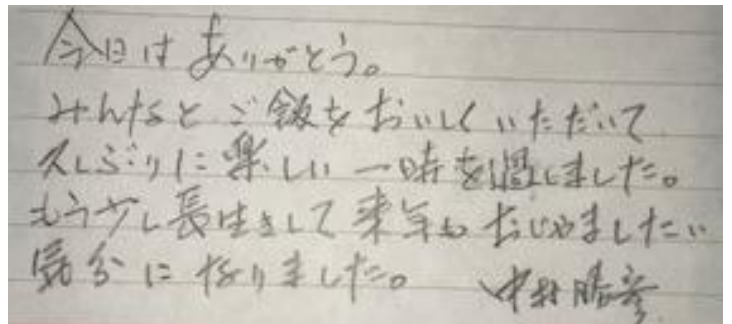 今日はありがとう。
みんなとご飯をおいしくいただいて
久しぶりに楽しい一時を過しました。
もう少し長生きして来年もおじゃましたい
気分になりました。 中村勝彦